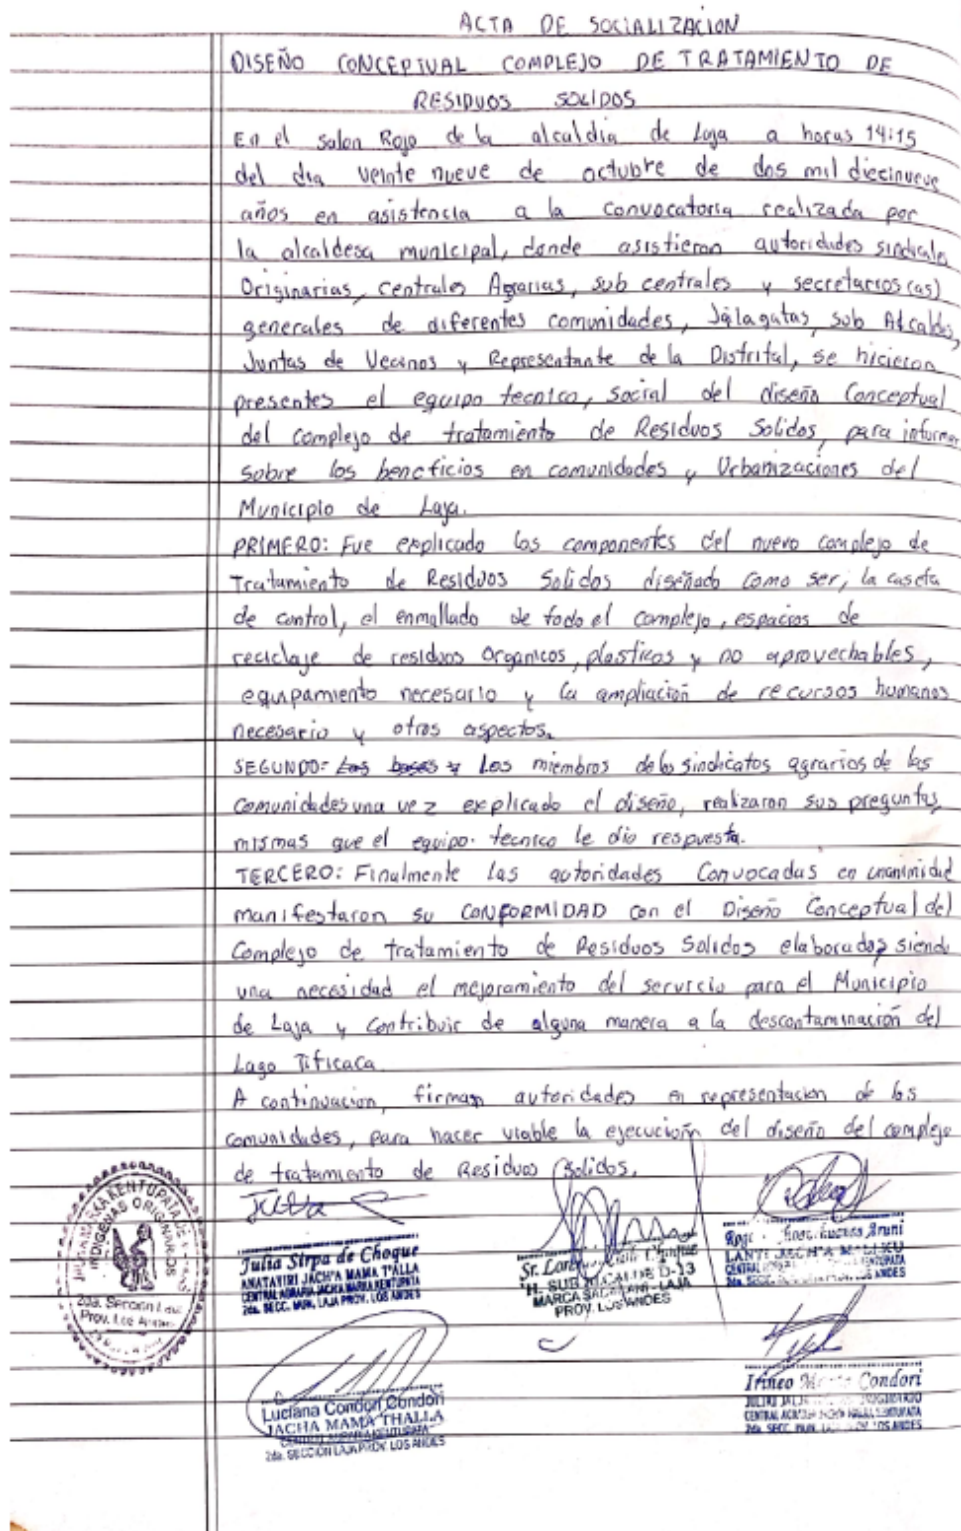 ACTA DE SOCIALIZACION
DISEÑO CONCEPTUAL COMPLEJO DE TRATAMIENTO DE
RESIDUOS SOLIDOS
En el salon Rojo de la alcaldia de Laja a horas 14:15
del dia veinte nueve de octubre de dos mil diecinueve
años en asistencia a la convocatoria realizada por
la alcaldesa municipal, donde asistieron autoridades sindicales
Originarias, centrales Agrarias, sub centrales y secretarios(as)
generales de diferentes comunidades, Jalagatas, sub Alcaldes,
Juntas de Vecinos y Representante de la Distrital, se hicieron
presentes el equipo tecnico, social del diseño Conceptual
del complejo de tratamiento de Residuos Solidos, para informar
sobre los beneficios en comunidades y Urbanizaciones del
Municipio de Laja.
PRIMERO: Fue explicado los componentes del nuevo complejo de
Tratamiento de Residuos Solidos diseñado como ser; la caseta
de control, el enmallado de todo el complejo, espacios de
reciclaje de residuos Organicos, plasticos y no aprovechables,
equipamiento necesario y la ampliación de recursos humanos
necesario y otros aspectos.
SEGUNDO: Las bases y Los miembros de los sindicatos agrarios de las
Comunidades una vez explicado el diseño, realizaron sus preguntas
mismas que el equipo tecnico le dio respuesta.
TERCERO: Finalmente las autoridades Convocadas en unanimidad
manifestaron su CONFORMIDAD con el Diseño Conceptual del
Complejo de tratamiento de Residuos Solidos elaborados siendo
una necesidad el mejoramiento del servicio para el Municipio
de Laja y contribuir de alguna manera a la descontaminación del
Lago Titicaca
A continuacion, firman autoridades en representacion de las
comunidades, para hacer viable la ejecución del diseño del complejo
de tratamiento de Residuos Solidos.
Julia Sirpa de Choque
JACH'A MAMA T'ALLA
2da. SECC. MUN. LAJA PROV. LOS ANDES
H. SUB ALCALDE D-13
LAJA
PROV. LOS ANDES
Aruni
LOS ANDES
INDIGENAS ORIGINARIOS
2da. Sección
Prov. Los Andes
Luciana Condori Condori
JACHA MAMA THALLA
2da. SECCION LAJA PROV. LOS ANDES
Irineo
Condori
2da. SECC. MUN.
LOS ANDES